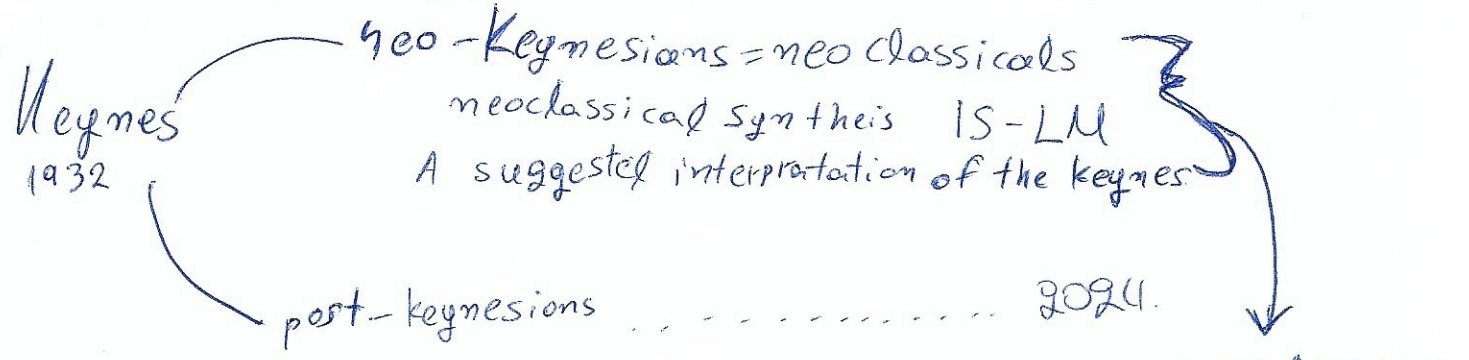 neo-Keynesians = neoclassicals
Keynes
neoclassical syntheis IS-LM
1932
A suggested interpratation of the keynes
post-keynesions ............. 2024.